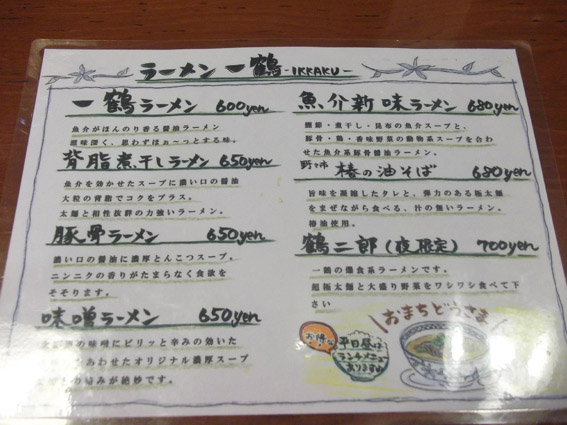 ラーメン 一鶴 -IKKAKU-
一鶴ラーメン 600yen
魚介がほんのり香る醤油ラーメン
滋味深く、思わずほぉ～っとする味。
背脂煮干しラーメン 650yen
魚介を効かせたスープに濃い口の醤油
大粒の背脂でコクをプラス。
太麺と相性抜群の力強いラーメン。
豚骨ラーメン 650yen
濃い口の醤油に濃厚とんこつスープ。
ニンニクの香りがたまらなく食欲を
そそります。
味噌ラーメン 650yen
の味噌にピリッと辛みの効いた
あわせたオリジナル濃厚スープ
の旨みが絶妙です。
魚介新味ラーメン 680yen
鰹節・煮干し・昆布の魚介スープと、
豚骨・鶏・香味野菜の動物系スープを合わ
せた魚介系豚骨醤油ラーメン。
野々市 椿の油そば 680yen
旨味を凝縮したタレと、弾力のある極太麺
をまぜながら食べる、汁の無いラーメン。
椿油使用。
鶴二郎(夜限定) 700yen
一鶴の爆食系ラーメンです。
超極太麺と大盛り野菜をワシワシ食べて下
さい
おまちどうさま
お得な
平日昼は
ランチメニュー
あります